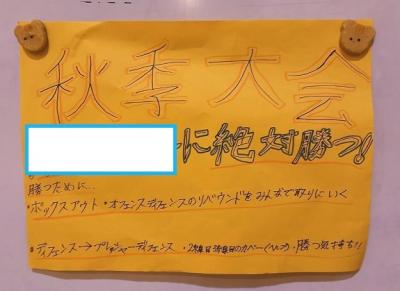 秋季大会
に絶対勝つ!!
勝つために…
・ボックスアウト・オフェンスディフェンスのリバウンドをみんなで取りにいく
・ディフェンス→プレッシャーディフェンス ・2線目3線目のカバー(ヘルプ) ・勝つ気持ち!!